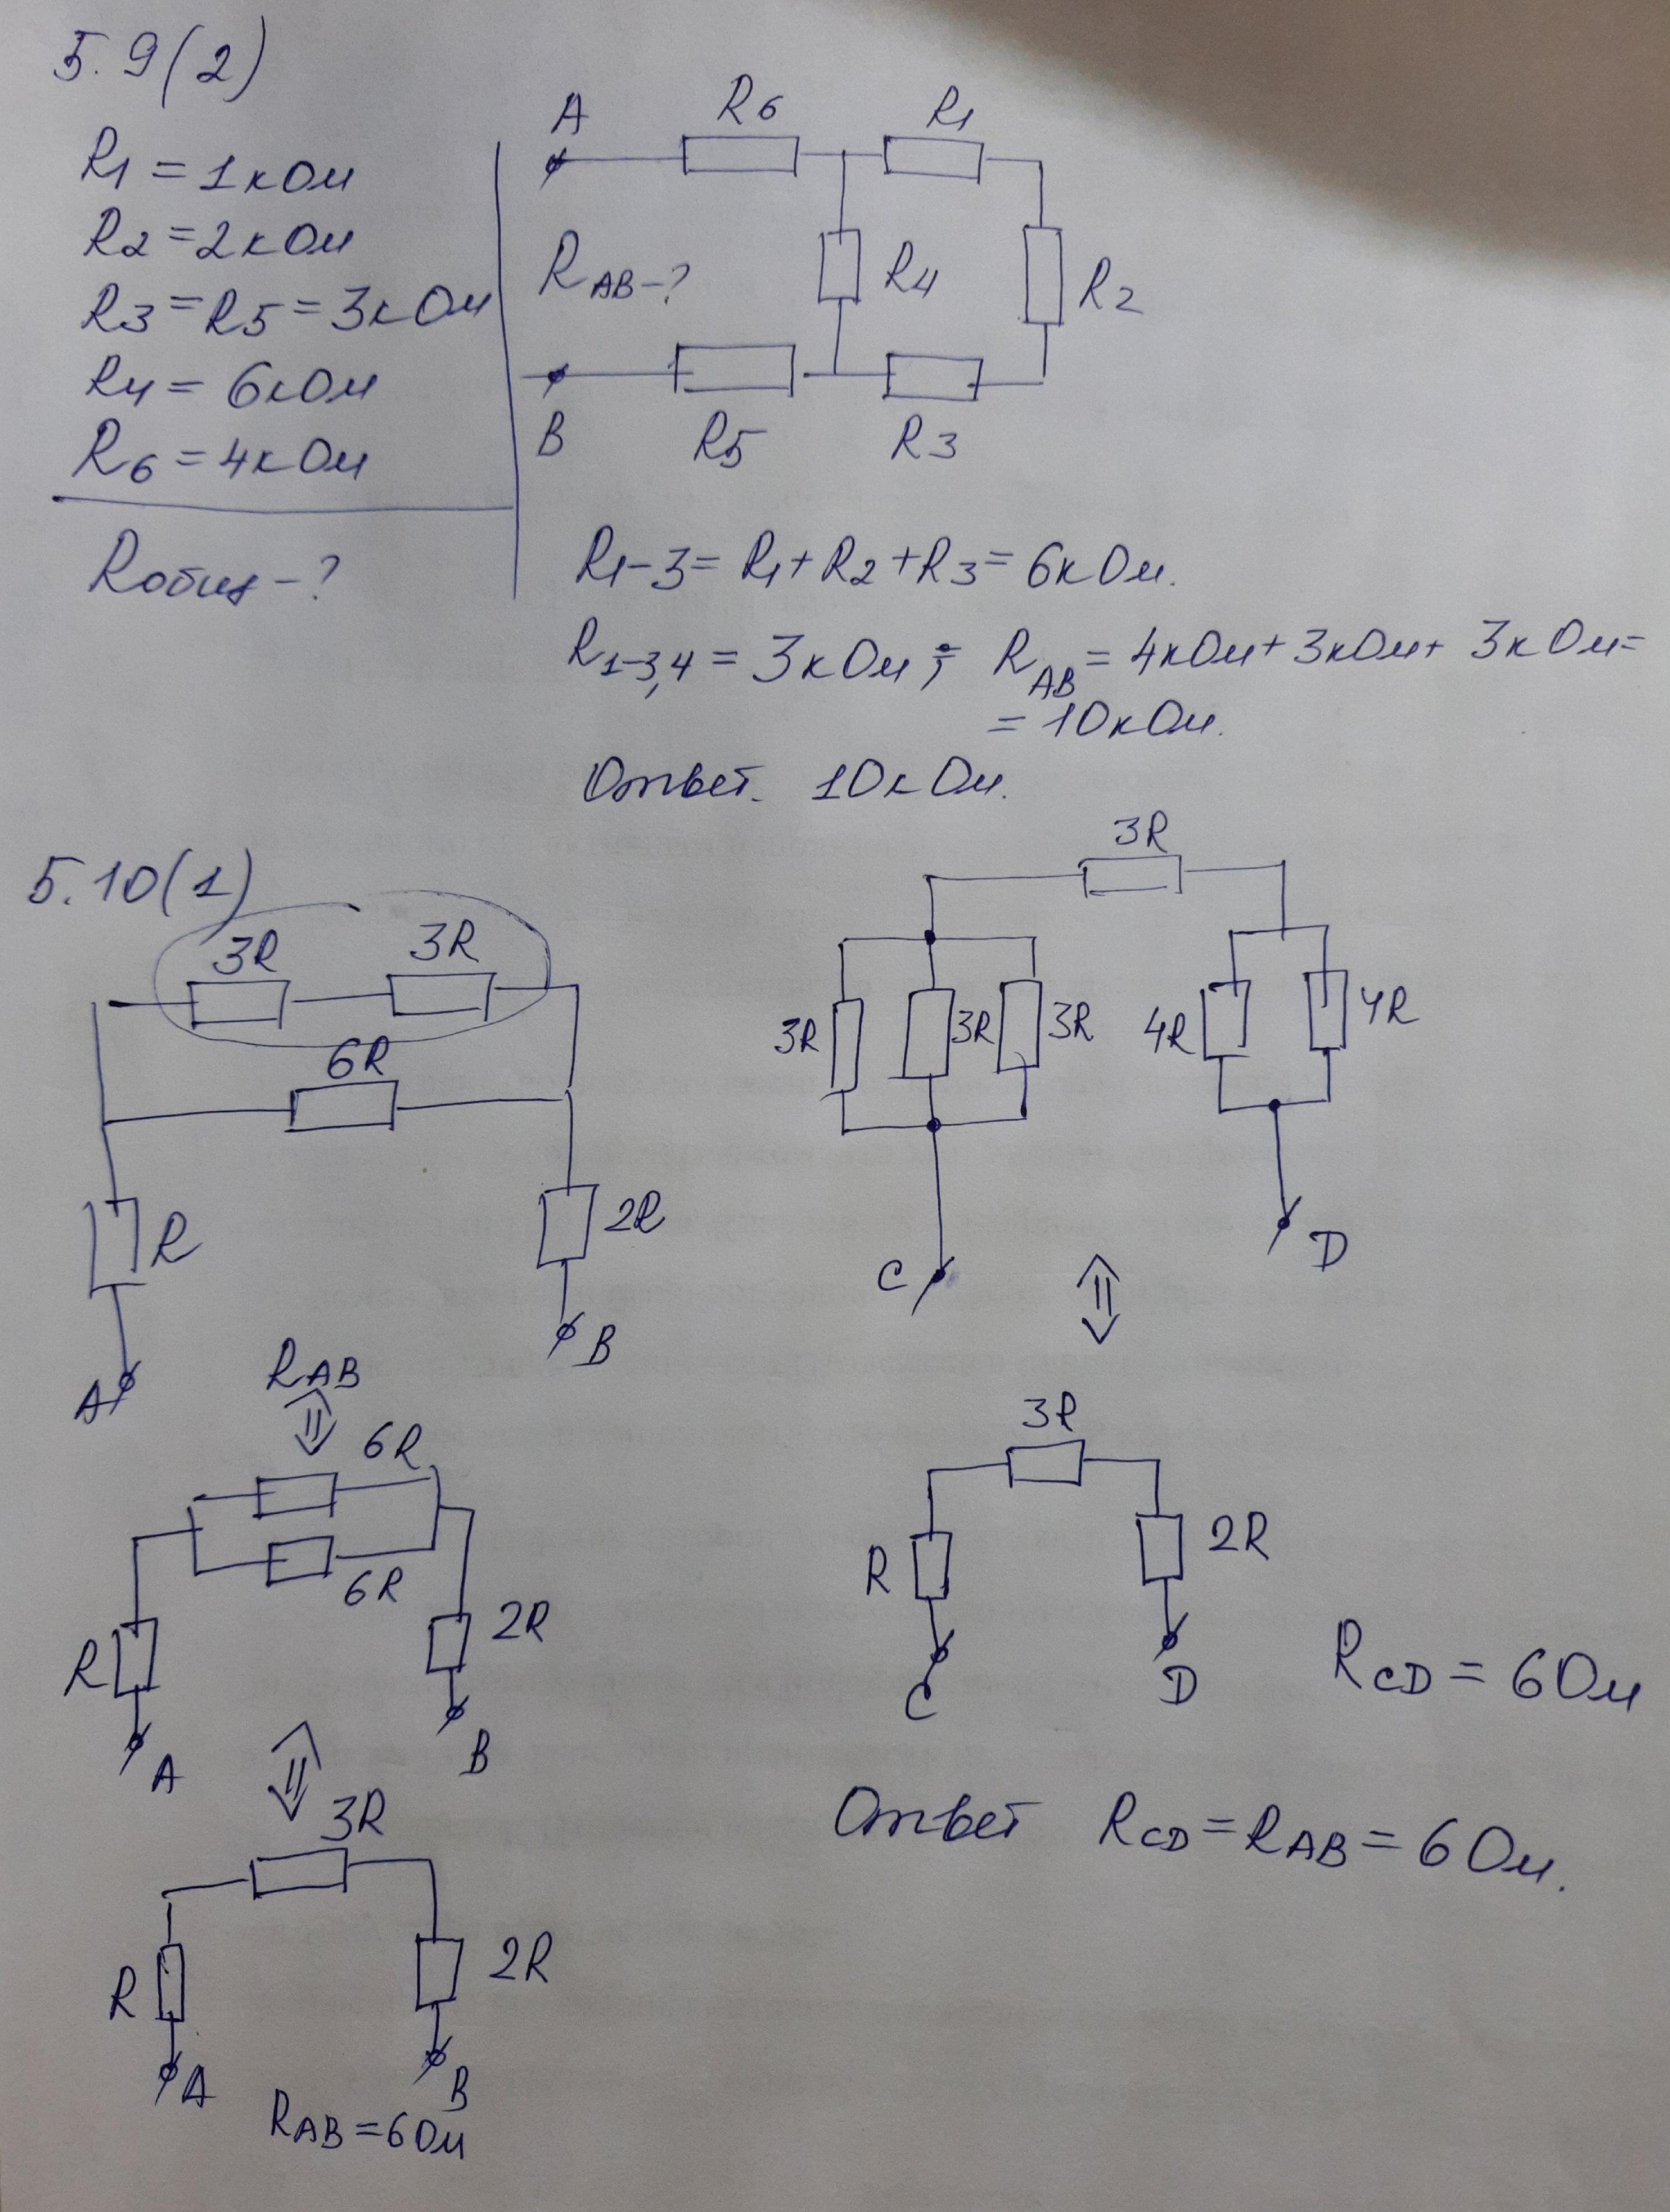 5.9(2)
R1 = 1кОм
R2 = 2кОм
R3 = R5 = 3кОм
R4 = 6кОм
R6 = 4кОм
Rобщ - ?
A
R6
R1
RAB - ?
R4
R2
B
R5
R3
R1-3 = R1 + R2 + R3 = 6кОм.
R1-3,4 = 3кОм; RAB = 4кОм + 3кОм + 3кОм =
= 10кОм.
Ответ. 10кОм.
5.10(1)
3R
3R
6R
R
2R
A
B
RAB
6R
6R
R
2R
A
B
3R
R
2R
A
B
RAB = 6Ом
3R
3R
3R
3R
4R
4R
C
D
3R
R
2R
C
D
RCD = 6Ом
Ответ RCD = RAB = 6Ом.